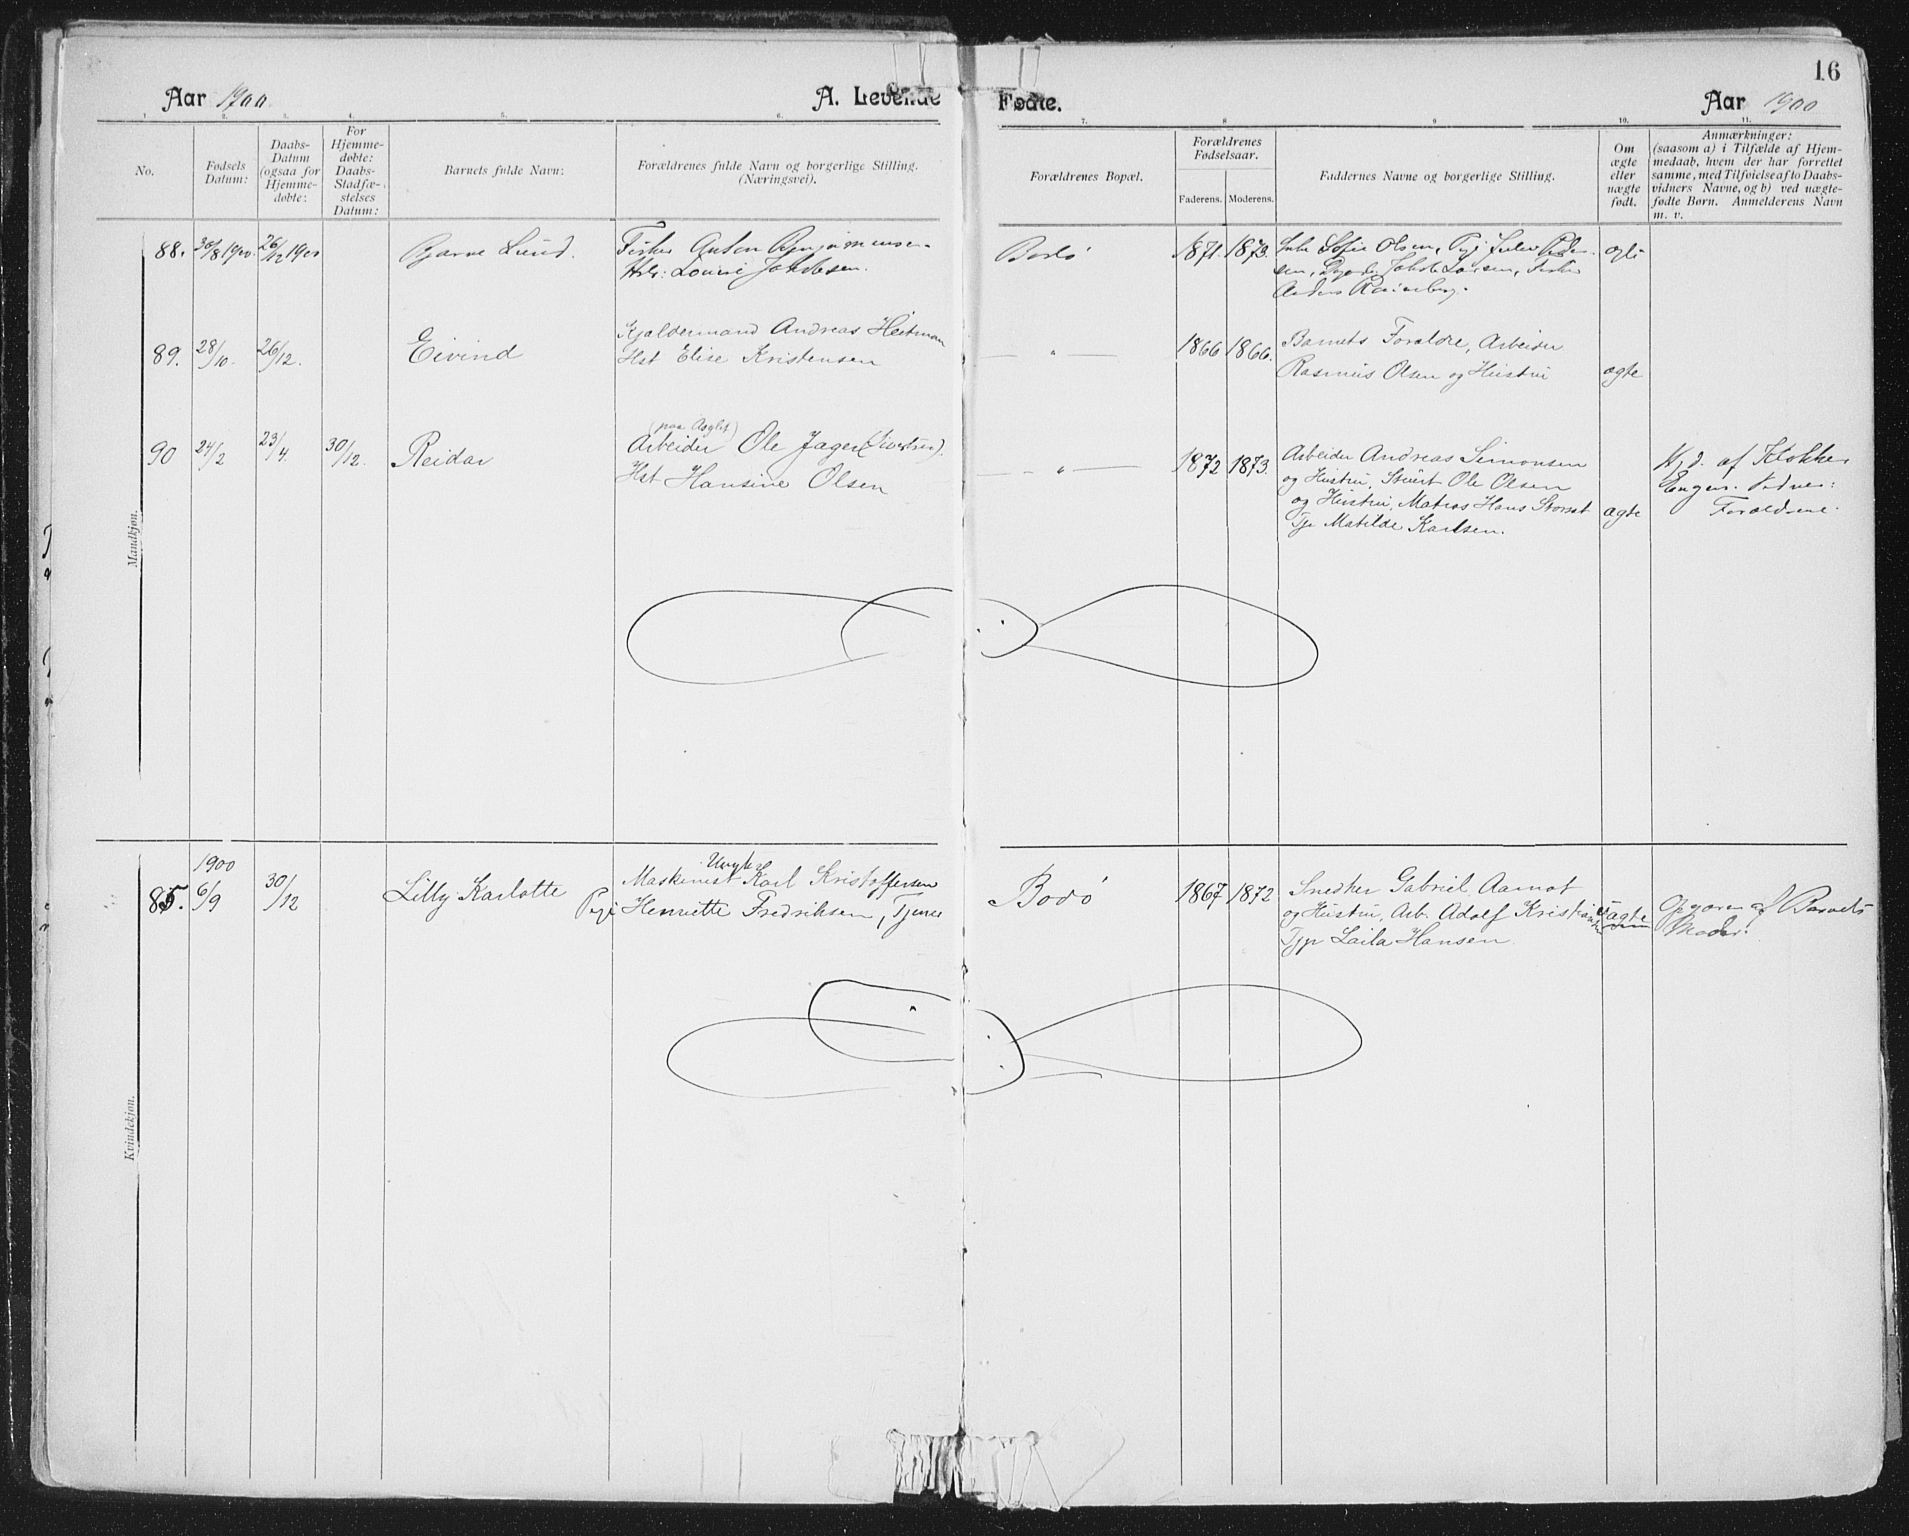 16
Aar 1900. A. Levende Fødte. Aar 1900
1. 2. 3. 4. 5. 6. 7. 8 9 10. 11.
No.
Fødsels
Datum:
Daabs-
Datum
(ogsaa for
Hjemme-
døbte:
For
Hjemme-
døbte:
Daabs-
Stadfæ-
stelses
Datum:
Barnets fulde Navn:
Forældrenes fulde Navn og borgerlige Stilling.
(Næringsvei).
Forældrenes Bopæl.
Forældrenes
Fødselsaar.
Faderens. Moderens.
Faddernes Navne og borgerlige Stilling.
Om
ægte
eller
uægte
født.
Anmærkninger:
(saasom a) i Tilfælde af Hjem-
medaab, hvem der har forrettet
samme, med Tilføielse af to Daabs-
vidners Navne, og b) ved uægte-
fødte Børn. Anmelderens Navn
m. v.
Mandkjøn.
88. 30/8 1900. 26/12 1900
Bjarne Lund.
Fisker Anton Benjaminsen.
Hst: Lovise Jakobsen.
Bodø
1871. 1873.
Enke Sofie Olsen, Pige
Jakob Larsen, Fisker
Anders
ægte
89. 28/10. 26/12.
Eivind
Kjældermand Andreas Heitman
Hst Elise Kristensen
— " —
1866 1866.
Barnets Forældre, Arbeider
Rasmus Olsen og Hustru
ægte
90 24/2 23/4. 30/12.
Reidar
Arbeider Ole Jager (Sivertsen).
Hst Hansine Olsen
— " —
1872 1873.
Arbeider Andreas Simonsen
og Hustru, Stuert Ole Olsen
og Hustru, Matros Hans
Tje Matilde Karlsen.
ægte
Hjd. af Klokker
Engen. Vidner:
Forældrene.
Kvindekjøn.
85. 1900
6/9 30/12
Lilly Karlotte
Ungk.
Maskinist Karl Kristoffersen
Pige Henriette Fredriksen, Tjener
Bodø
1867 1872
Snedker Gabriel Aamot
og Hustru, Arb. Adolf Kristiansen
Tjp Laila Hansen
uægte
Opgaven af Barnets
Moder.